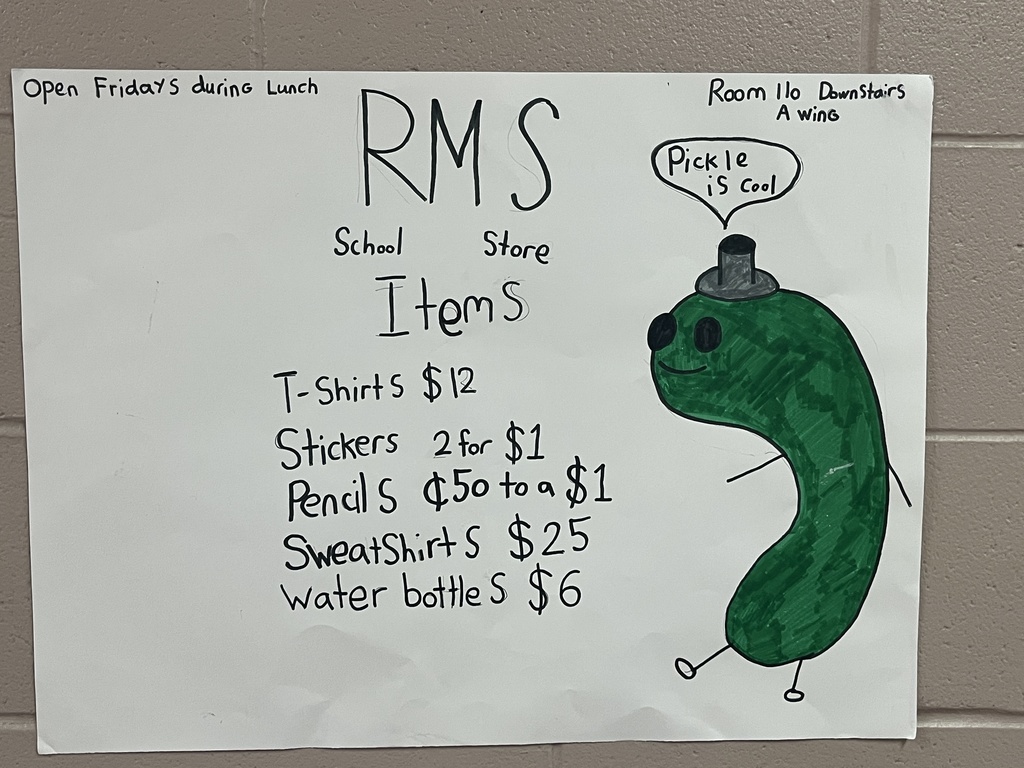 Open Fridays during Lunch
Room 110 Downstairs
A wing
RMS
School Store
Items
Pickle
is cool
T-Shirts $12
Stickers 2 for $1
Pencils ¢50 to a $1
Sweatshirts $25
water bottles $6